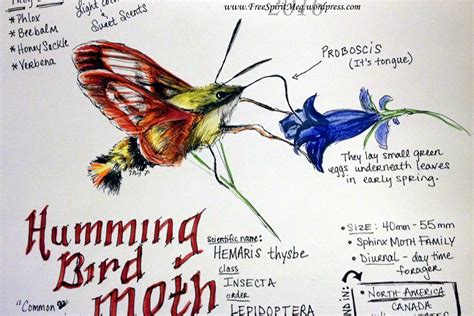 www.FreeSpiritMeg.wordpress.com
2016
• Phlox
• Beebalm
• Honey Suckle
• Verbena
Light color
& Sweet Scents
PROBOSCIS
(It's tongue)
They lay small green
eggs underneath leaves
in early spring.
Humming
Bird
Moth
"Common
Scientific name:
HEMARIS thysbe
class
INSECTA
order
LEPIDOPTERA
• SIZE: 40mm - 55mm
• Sphinx MOTH FAMILY
• Diurnal - day time
forager
IND IN:
NORTH AMERICA
CANADA